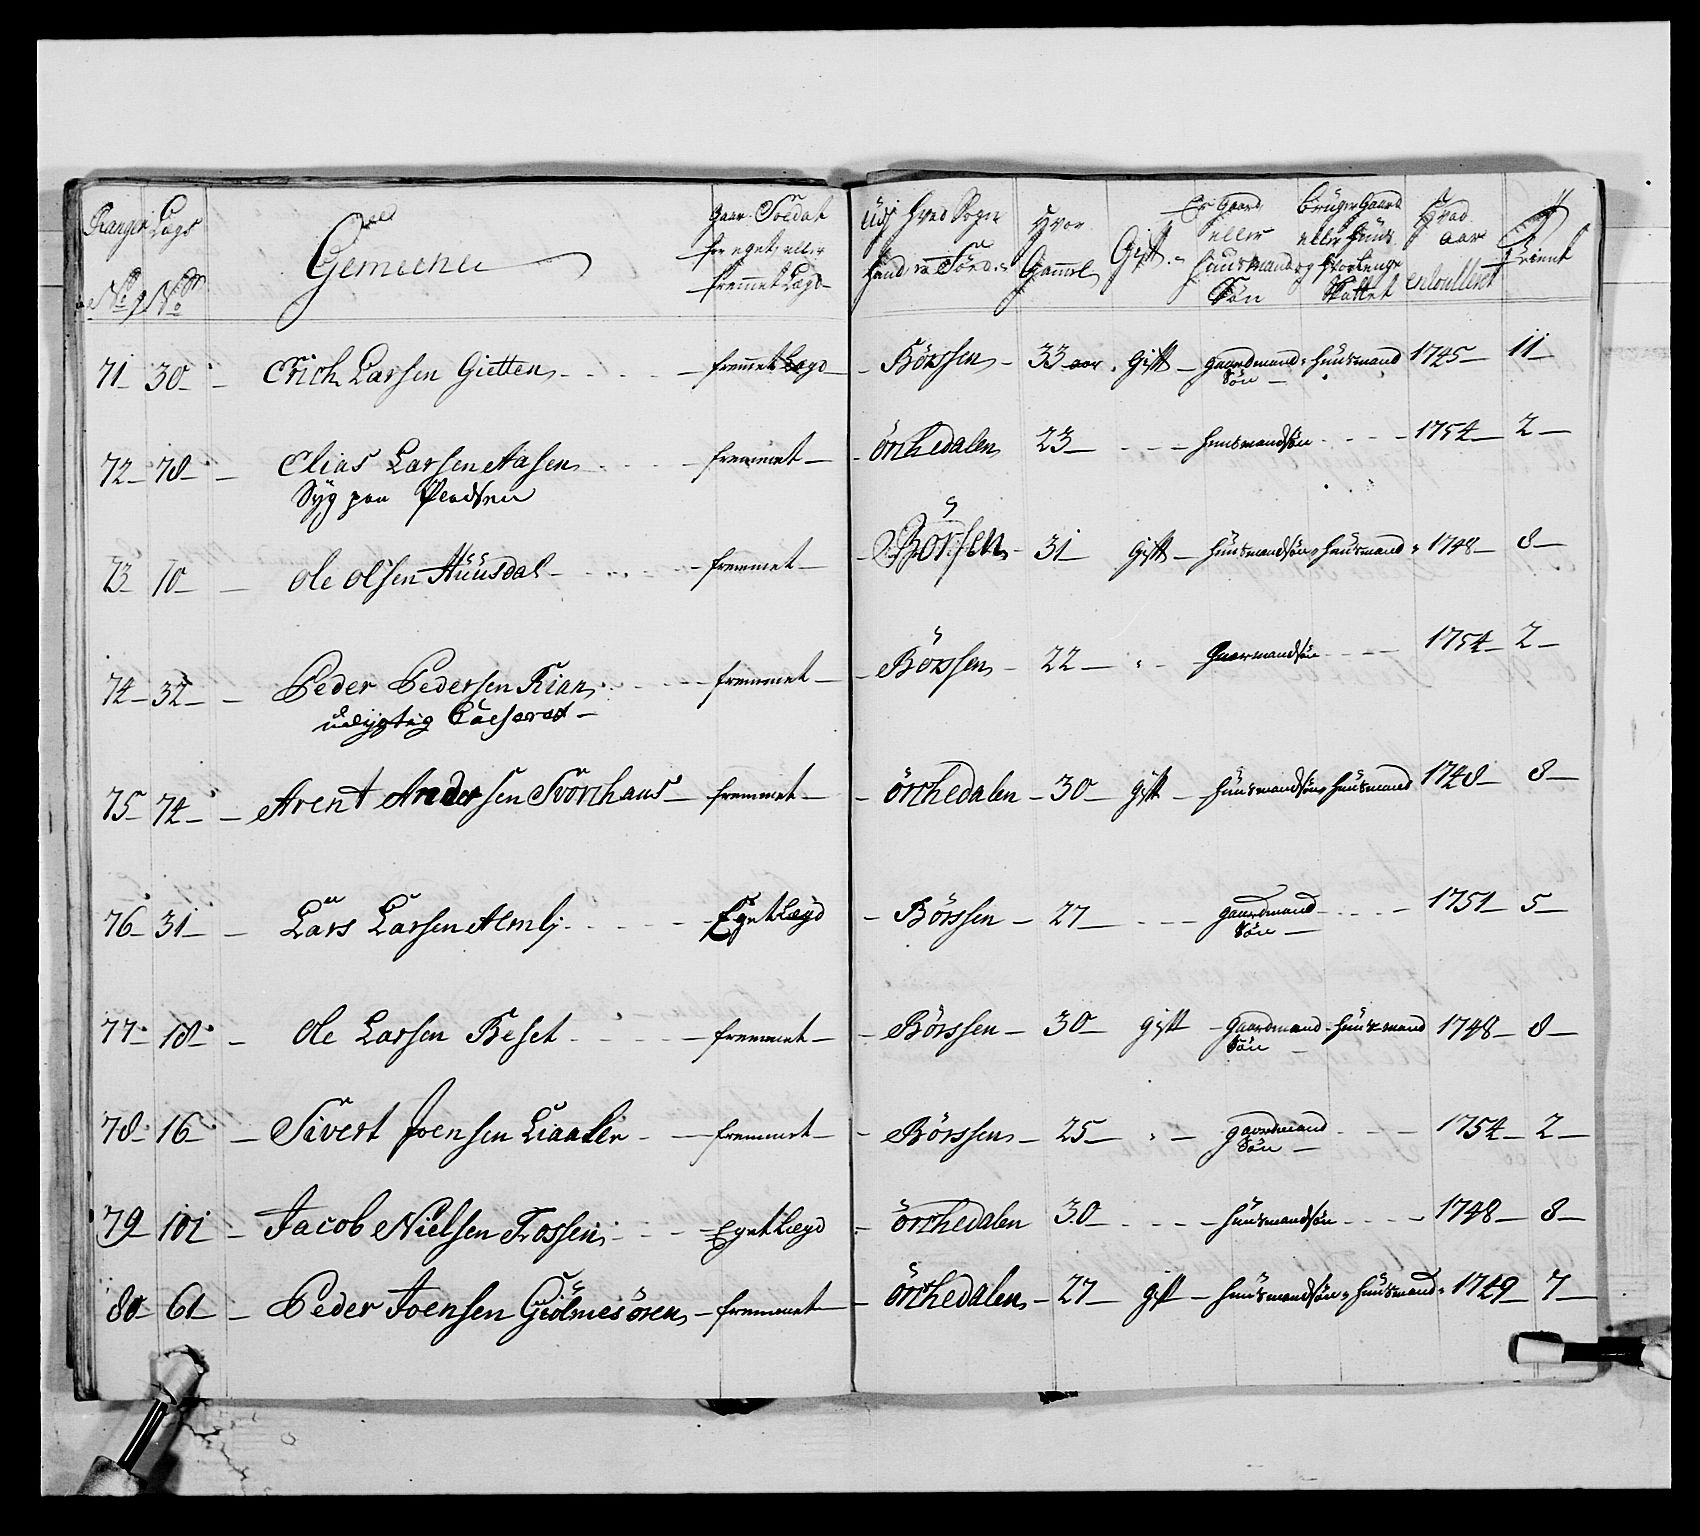 Ranger Lags
No No
Gemeene
gaar Soldat
for eget eller
fremmet Lægd
Udj Hvad Sogn
Hvor
Gammel
Gift
Er Gaard
eller
Huusmand
Søn
Bruger Gaard
eller Huus
Skattet
Hvad
aar
enroullert
Tient
71 30 Erich Larsen Gietten fremmet Lægd Börssen 33 aar Gift gaardmand Huusmand 1745 11
Søn
72 78 Elias Larsen Aasen fremmet örchedalen 23 huusmandsøn 1754 2
Syg paa
73 10 Ole Olsen Huusdal fremmet Börsen 31 Gift huusmandsøn huusmand 1748 8
74 32 Peder Pedersen Rian fremmet Börssen 22 gaarmandsøn 1754 2
udygtig Casserat
75 74 Arent Andersen Svorchaus fremmet örchedalen 30 gift huusmandsøn huusmand 1748 8
76 31 Lars Larsen Almlj Eget Lægd Börssen 27 gaardmand 1751 5
Søn
77 18 Ole Larsen Beset fremmet Börssen 30 gift gaardmand huusmand 1748 8
Søn
78 16 Sivert Joensen Liaalin fremmet Börssen 25 gaardmand 1754 2
Søn
79 101 Jacob Nielsen Fossen Eget Lægd örchedalen 30 huusmandsøn 1748 8
80 61 Peder Joensen Giölmesören fremmet örchedalen 27 gift huusmandsøn huusmand 1749 7